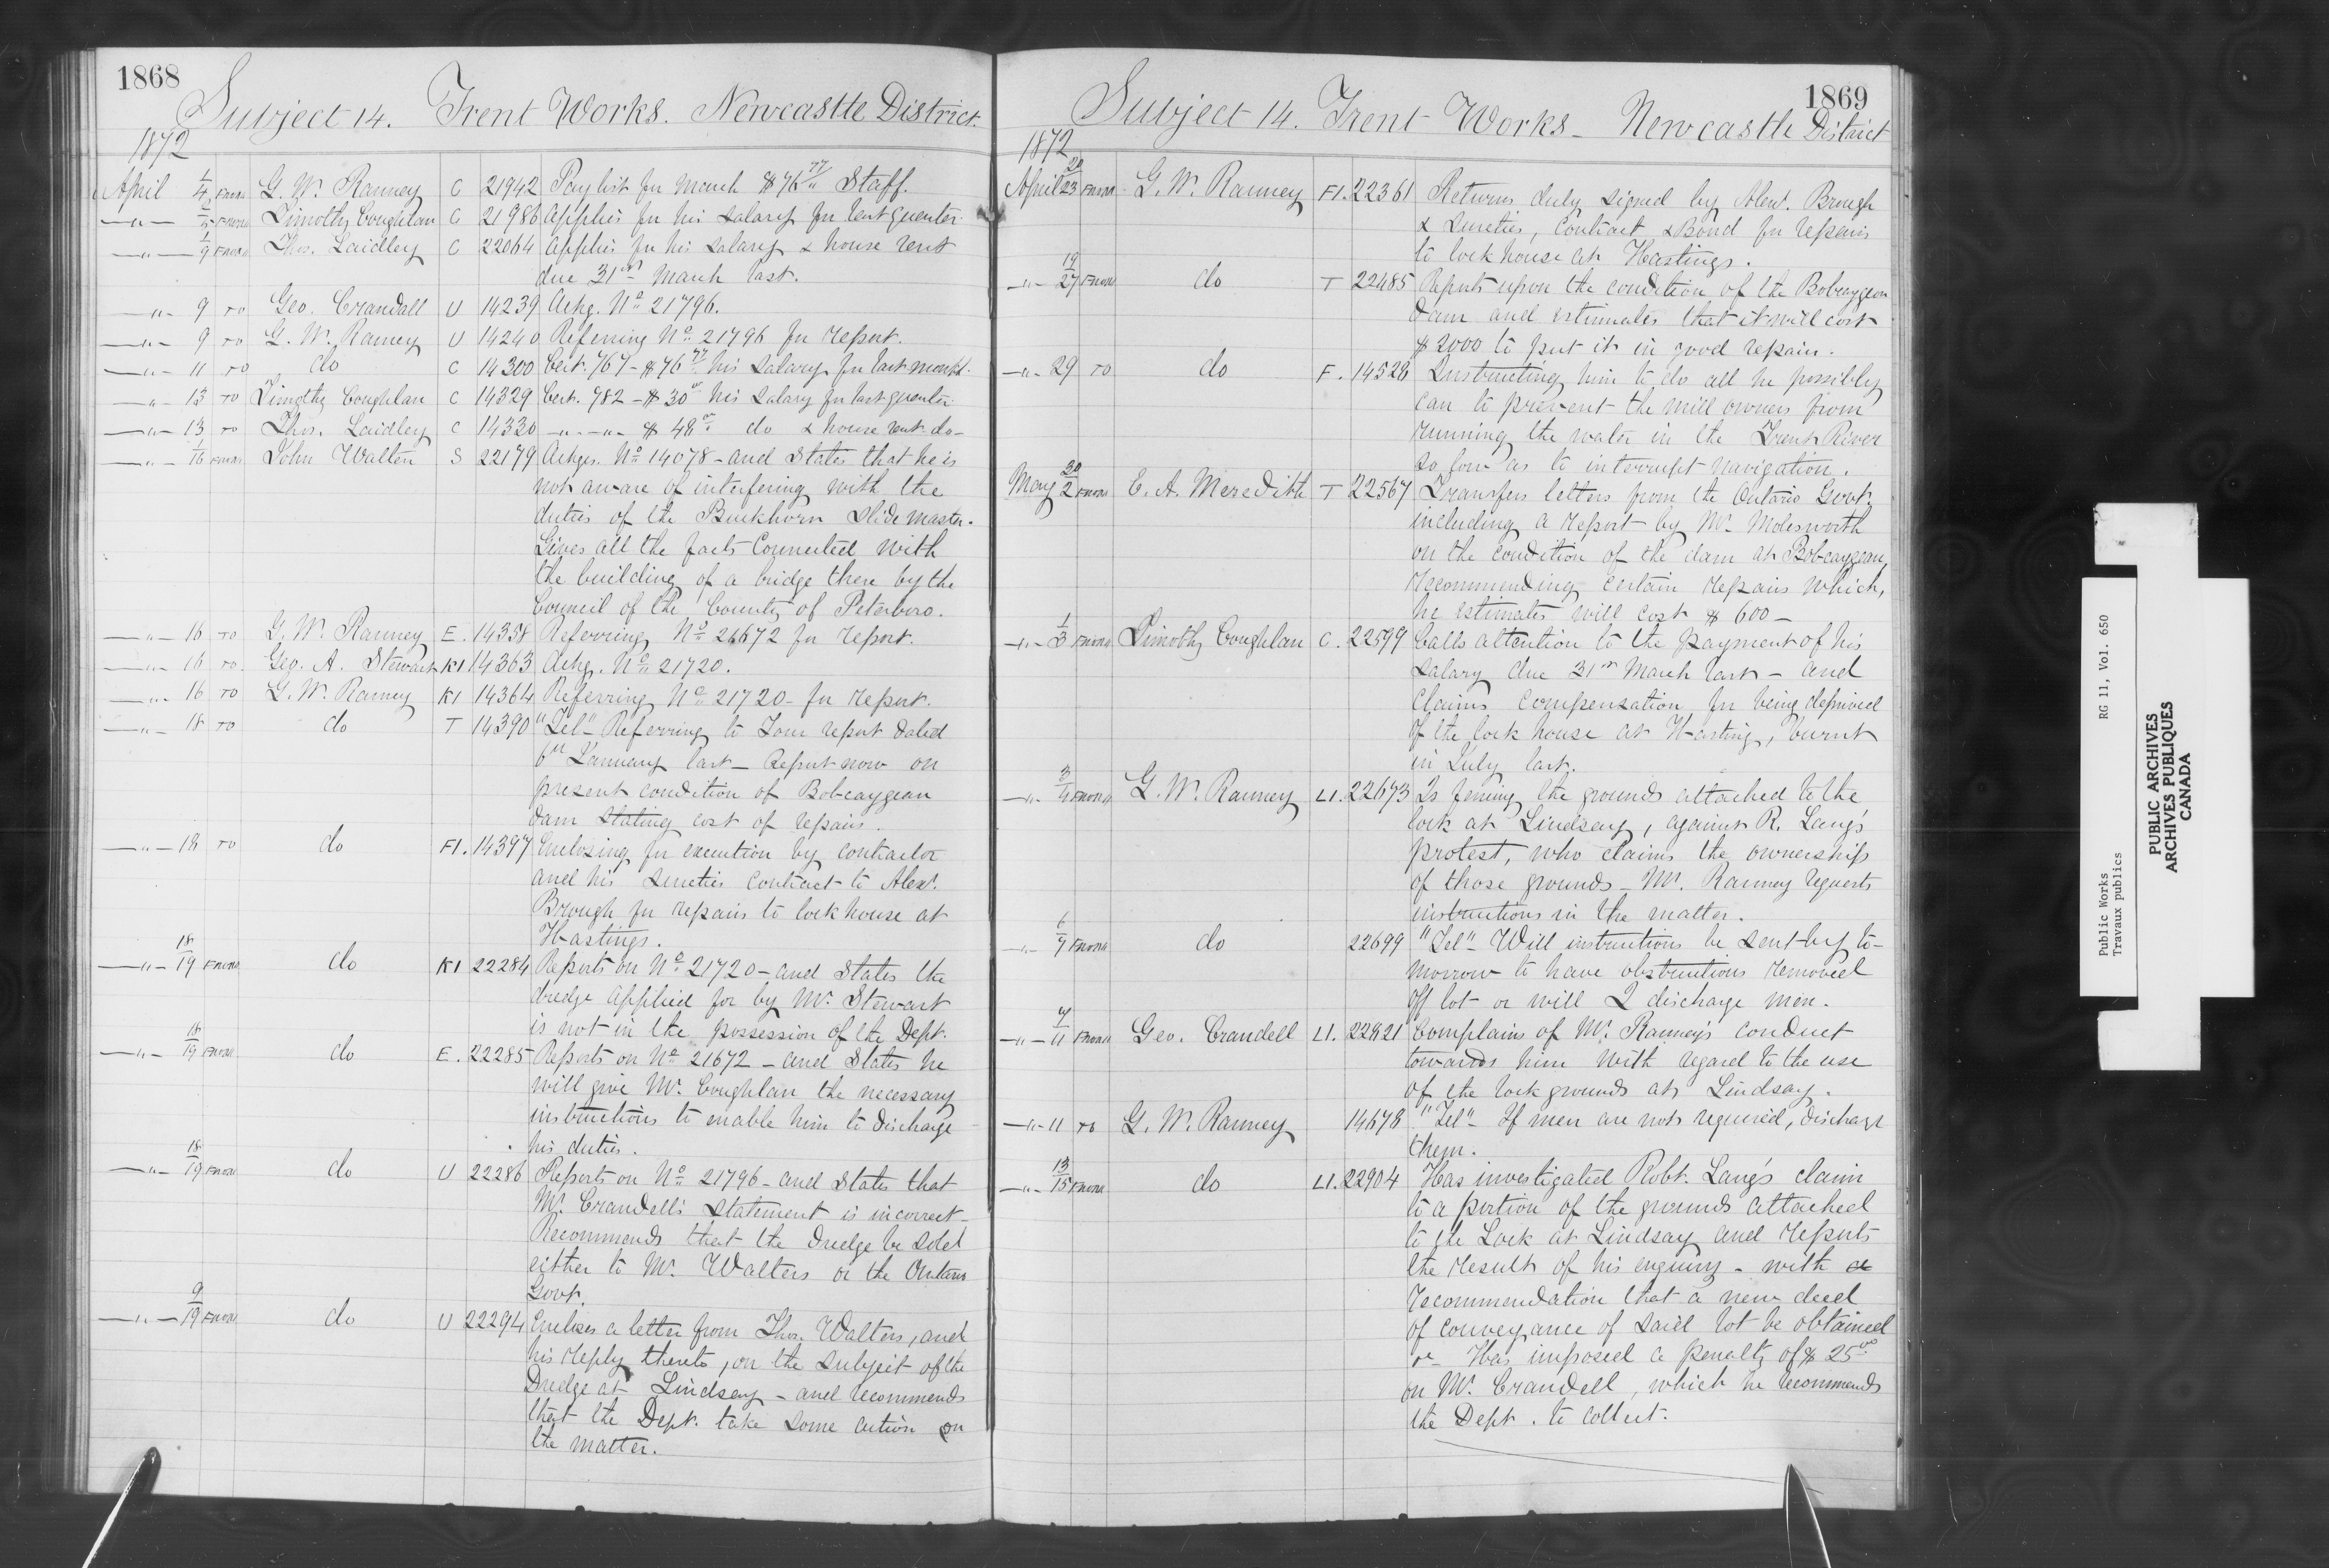 1868
Subject 14. Trent Works. Newcastle District.
1872
April 1/4 From G. W. Ranney C 21942 Pay list for March $76 77/ Staff.
-"- 2/5 From Timothy Coughlan C 21986 Applies for his salary for last quarter.
-"- 1/9 From Thos. Laidley C 22064 Applies for his salary & house rent
due 31st March last.
-"- 9 To Geo. Crandall U 14239 Ackg. No 21796.
-"- 9 To G. W. Ranney U 14240 Referring No 21796 for report.
-"- 11 To do C 14300 Cert. 767 - $76 77 his salary for last month.
-"- 13 To Timothy Coughlan C 14329 Cert. 782 - $30 his salary for last quarter.
-"- 13 To Thos. Laidley C 14330 -"- -"- $48 do & house rent do-
-"- 1/16 From John Walten S 22179 Ackgs. No 14078 - and states that he is
not aware of interfering with the
duties of the Buckhorn Slide master.
Gives all the facts connected with
the building of a bridge there by the
Council of the County of Peterboro.
-"- 16 To G. W. Ranney E. 14358 Referring No 21672 for report.
-"- 16 To. Geo. A. Stewart K1 14363 Ackg. No 21720.
-"- 16 To G. W. Ranney K1 14364 Referring No 21720 - for report.
-"- 18 To do T 14390 "Tel" Referring to your report dated
6th January last - Report now on
present condition of Bobcaygean
dam stating cost of repairs.
-"- 18 To do F1. 14397 Enclosing for execution by contractor
and his sureties contract to Alexr.
Brough for repairs to lock house at
Hastings.
-"- 18/19 From do K1 22284 Reports on No 21720 - and states the
dredge applied for by Mr. Stewart
is not in the possession of the Dept.
-"- 18/19 From do E. 22285 Reports on No 21672 - and states he
will give Mr. Coughlan the necessary
instructions to enable him to discharge
his duties.
-"- 18/19 From do U 22286 Reports on No 21796 - and states that
Mr. Crandell's statement is incorrect -
Recommends that the dredge be sold
either to Mr. Walters or the Ontario
Govt.
-"- 9/19 From do U 22294 Encloses a letter from Thos. Walters, and
his reply thereto, on the subject of the
Dredge at Lindsay - and recommends
that the Dept. take some action on
the matter.
1869
Subject 14. Trent Works - Newcastle District
1872
April 20/23 From G. W. Ranney F1. 22361 Returns duly signed by Alexr. Brough
& sureties, contract & Bond for repairs
to lock house at Hastings.
-"- 19/27 From do T 22485 Reports upon the condition of the Bobcaygeon
dam and estimates that it will cost
$2000 to put it in good repair.
-"- 29 To do F. 14528 Instructing him to do all he possibly
can to prevent the mill owners from
running the water in the Trent River
so low as to interrupt navigation.
May 30/2 From E. A. Meredith T 22567 Transfers letters from the Ontario Govt.
including a report by Mr. Molesworth
on the condition of the dam at Bobcaygean,
recommending certain repairs which,
he estimates will cost $600 -
-"- 1/3 From Timothy Coughlan C. 22599 Calls attention to the payment of his
salary due 31st March last - and
claims compensation for being deprived
of the lock house at Hasting, burnt
in July last.
-"- 3/4 From G. W. Ranney L1. 22673 Is fencing the grounds attached to the
lock at Lindsay, against R. Lang's
protest, who claims the ownership
of those grounds - Mr. Ranney requests
instructions in the matter.
-"- 6/7 From do 22699 "Tel" - Will instructions be sent by to-
morrow to have obstructions removed
off lot or will I discharge men.
-"- 7/11 From Geo. Crandell L1. 22821 Complains of Mr. Ranney's conduct
towards him with regard to the use
of the lock grounds at Lindsay.
-"- 11 To G. W. Ranney 14678 "Tel" - If men are not required, discharge
them.
-"- 13/15 From do L1. 22904 Has investigated Robt. Lang's claim
to a portion of the grounds attached
to the Lock at Lindsay and reports
the result of his enquiry - with a
recommendation that a new deed
of conveyance of said lot be obtained
Has imposed a penalty of $25 00
on Mr. Crandell, which he recommends
the Dept. to collect.
Public Works
Travaux publics
RG 11, Vol. 650
PUBLIC ARCHIVES
ARCHIVES PUBLIQUES
CANADA